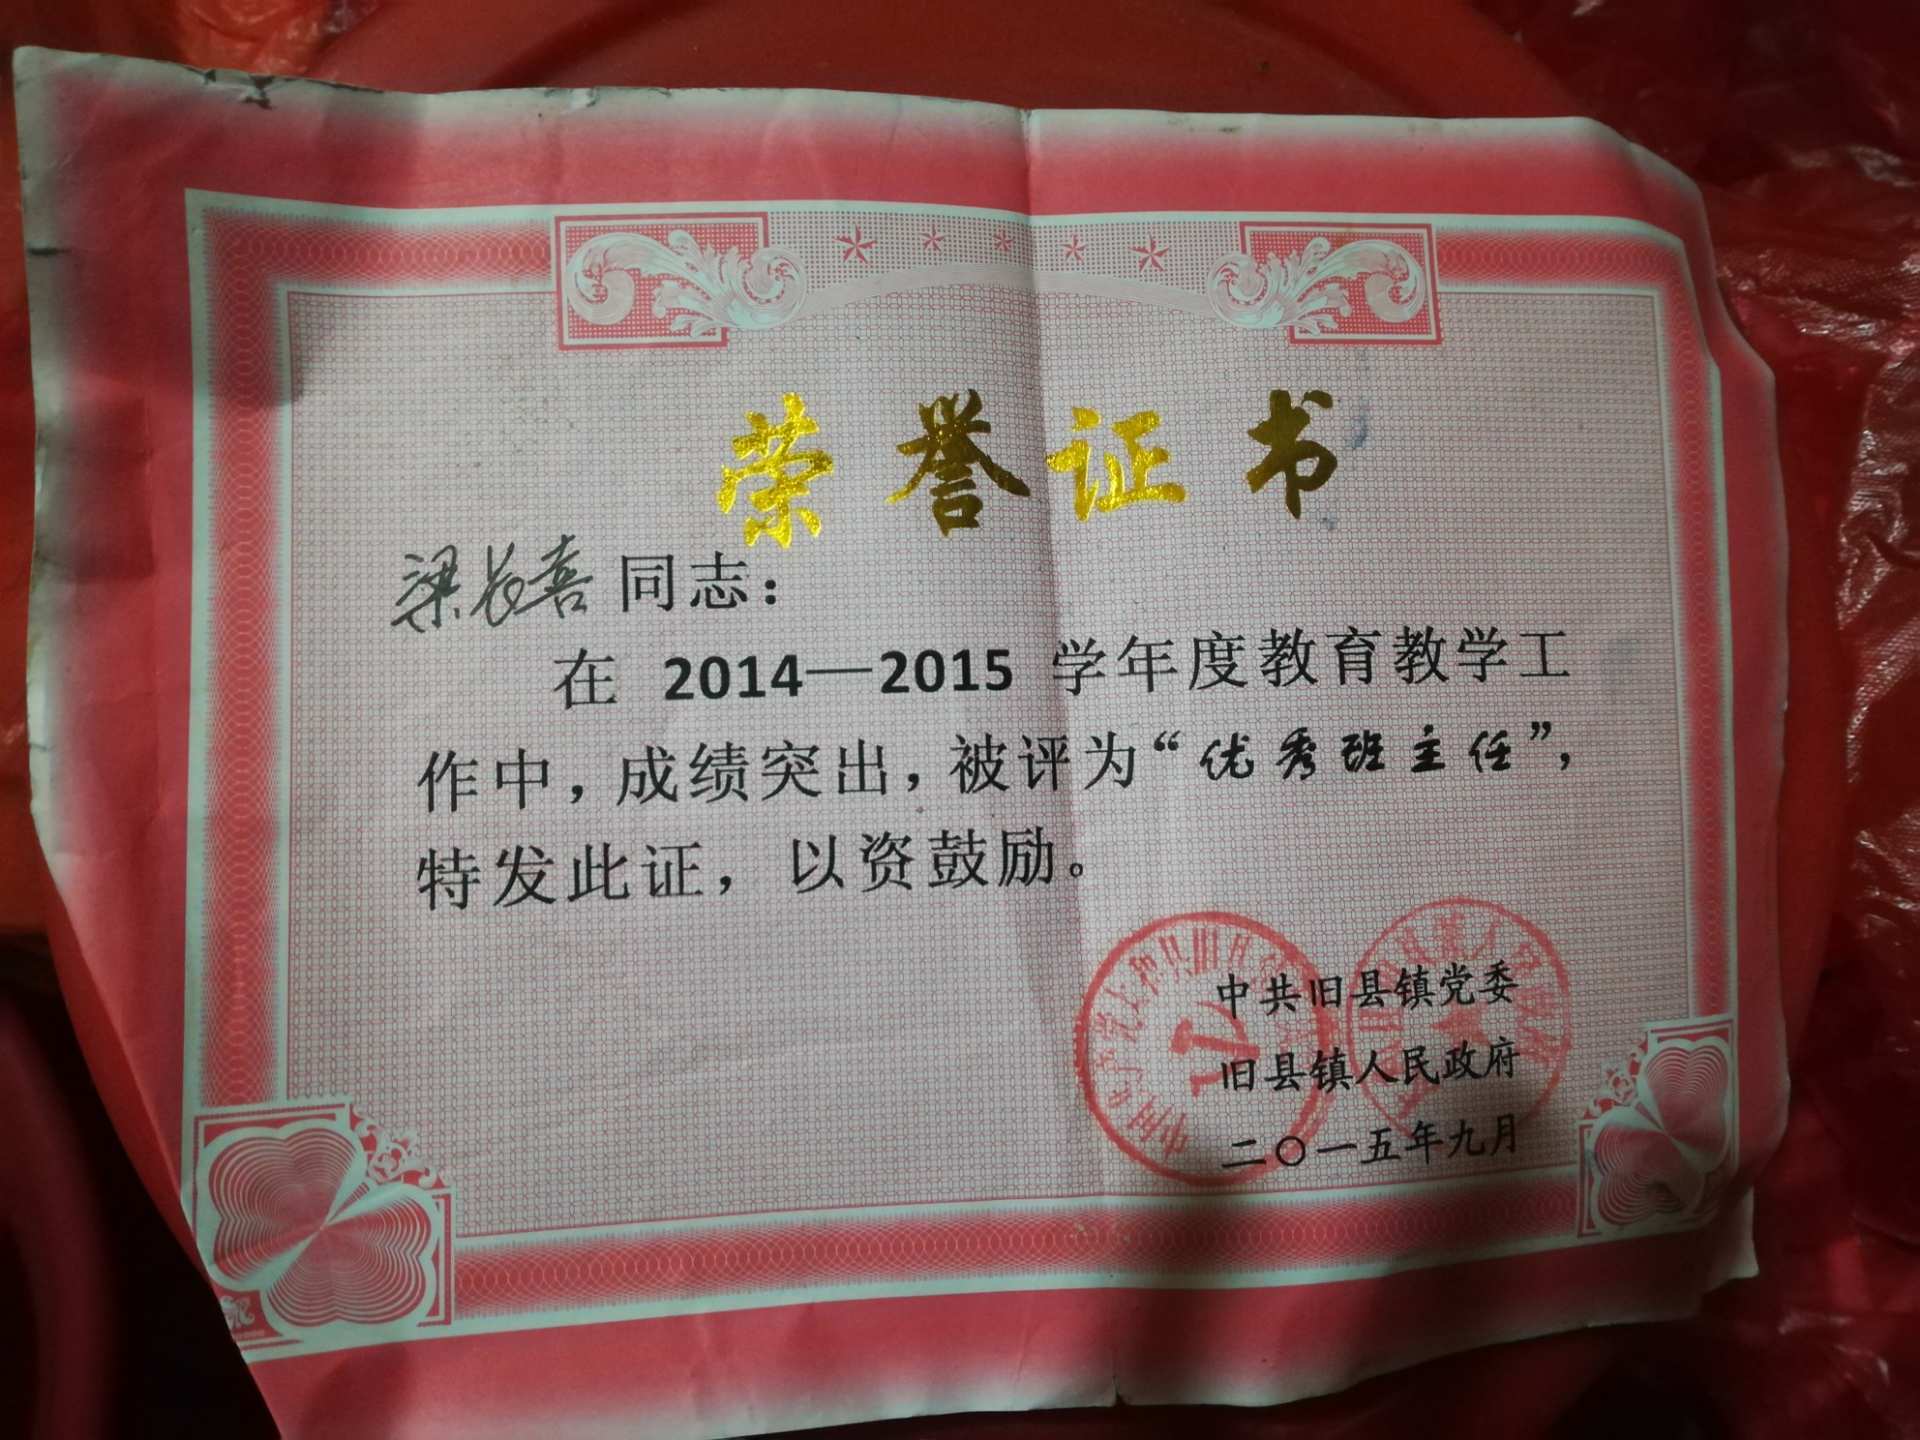 荣誉证书
梁长喜同志：
在 2014—2015 学年度教育教学工
作中，成绩突出，被评为“优秀班主任”，
特发此证，以资鼓励。
中共旧县镇党委
旧县镇人民政府
二〇一五年九月